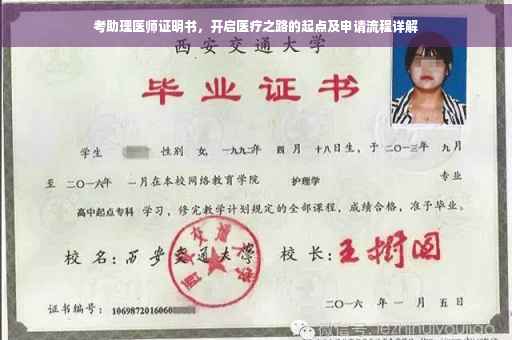 考助理医师证明书，开启医疗之路的起点及申请流程详解
西安交通大学
毕业证书
学生 性别 女，一九九二年 四月 十八日生，于二〇一三年 九月
至 二〇一六年 一月在本校网络教育学院 护理学 专业
高中起点专科 学习，修完教学计划规定的全部课程，成绩合格，准予毕业。
校名：西安交通大学 校长：王树国
西安交通大学
证书编号：1069872016060
二〇一六年一月五日
微信号: jezhinuiyoujiao